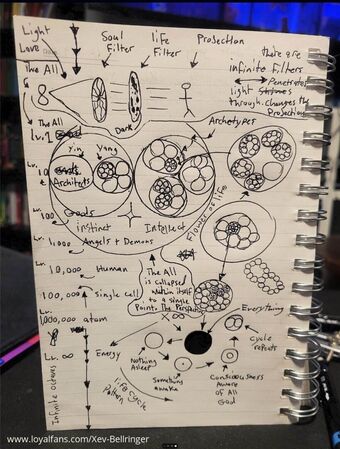 Light
Love
Soul
Filter
life
Filter
Projection
there are
infinite Filters
Penetrates
light
through. changes the
Projection
The All
8
Dark
The All
Lv. 1
Archetypes
yin yang
Lv. 10
Architects
Lv. 100
Gods
instinct
Intellect
Flower of life
Lv. 1,000
Angels + Demons
Lv. 10,000
Human
100,000
Single cell
1,000,000 atom
The All
is collapsed
within itself
to a single
Point. The Perspective
X ∞
Everything
Lv. ∞
Energy
Nothing
Asleep
Something
awake
Consciousness
Aware
of All
God
cycle
repeats
life cycle
Pattern
Infinite octaves
www.loyalfans.com/Xev-Bellringer